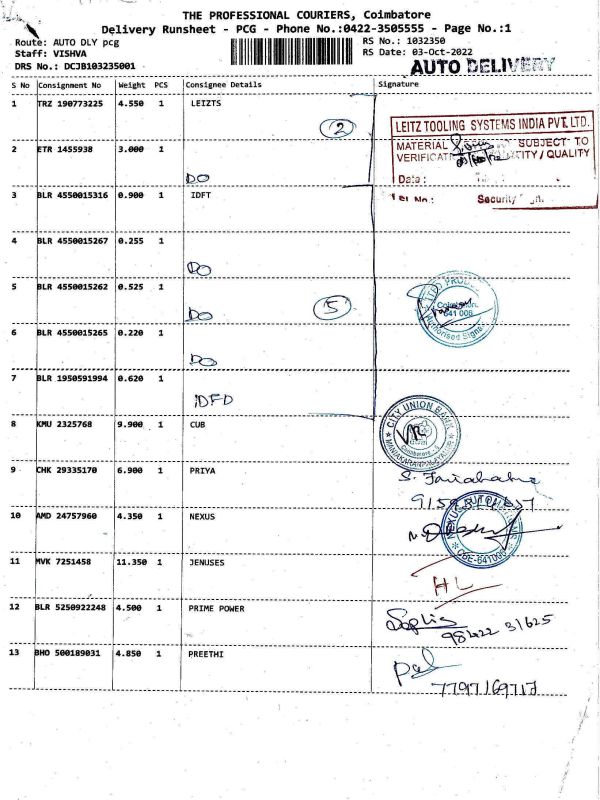 THE PROFESSIONAL COURIERS, Coimbatore
Delivery Runsheet - PCG - Phone No.:0422-3505555 - Page No.:1
Route: AUTO DLY pcg
Staff: VISHVA
DRS No.: DCJB103235001
RS No.: 1032350
RS Date: 03-Oct-2022
AUTO DELIVERY
S No Consignment No Weight PCS Consignee Details Signature
1 TRZ 190773225 4.550 1 LEIZTS
2
LEITZ TOOLING SYSTEMS INDIA PVT. LTD.
MATERIAL SUBJECT TO
QUANTITY / QUALITY
Date :
Sl No.: Security
2 ETR 1455938 3.000 1
DO
3 BLR 4550015316 0.900 1 IDFT
4 BLR 4550015267 0.255 1
DO
5 BLR 4550015262 0.525 1
DO
5
641 006
Authorised
6 BLR 4550015265 0.220 1
DO
7 BLR 1950591994 0.620 1
IDFD
8 KMU 2325768 9.900 1 CUB
CITY UNION BANK
9 CHK 29335170 6.900 1 PRIYA
10 AMD 24757960 4.350 1 NEXUS
NEXUS
CBE-641006
11 MVK 7251458 11.350 1 JENUSES
HL
12 BLR 5250922248 4.500 1 PRIME POWER
Sophia
98422 31625
13 BHO 500189031 4.850 1 PREETHI
Pal
7797169717